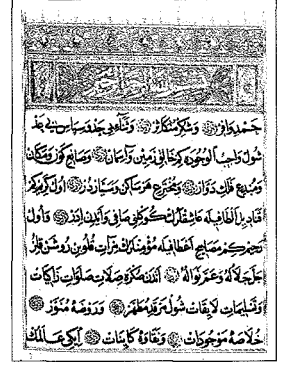 بسم الله الرحمن الرحيم
حمد وافر و شكر متكاثر و ثناء بی حد و سپاس بی عد
شول واجب الوجوده كم خالق زمين و آسمان و صانع كون و مكان
و مبدع فلك دوار و مخترع هر ساكن و سياردر اول كريم كم
قناديل الطافيله عاشقلرك كوكلنی صافی و آيدين ايدر و اول
رحيم كم مصابيح اعطافيله مؤمنلرك مرآت قلوبن روشن قلور
جل جلاله و عم نواله اندن صكره صلات صلوات زاكيات
و تسليمات لايقات شول مرقد مطهر و روضه منور
خلاصه موجودات و نقاوه كاينات ايكی عالمك